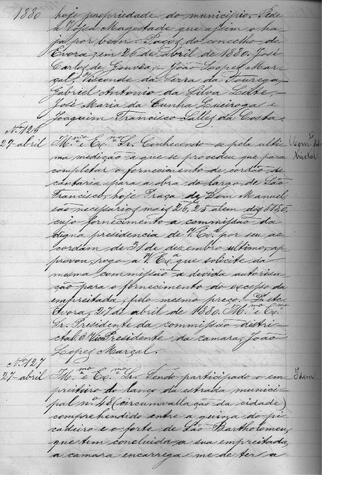 1880
hoje propriedade do municipio. Pede
a Vossa Magestade que assim o ha
ja por bem. Paços do concelho de
Evora, em 26 de abril de 1880. José
Carlos de Gouvêa, João Lopes Mar
çal, Visconde da Serra da Tourega,
Gabriel Antonio da Silva Leite,
José Maria da Cunha
Joaquim Francisco Telles da Costa
Nº 126
27-abril
Conhecendo-se pela ulti
ma medição a que se procedeu que para
completar o fornecimento de cordão de
cantaria para a obra do largo de São
Francisco, hoje Praça de Dom Manuel
são necessarios mais
cujo fornecimento a commissão da
digna presidencia de V. Exª por seu ac
cordam de 21 de dezembro ultimo, ap
provou, rogo a V. Exª que solicite da
mesma commissão a devida autorisa
ção para o fornecimento do excesso da
empreitada, pelo mesmo preço.
Evora, 27 de abril de 1880.
Sr. Presidente da commissão distric
tal. O Presidente da camara, João
Lopes Marçal.
Nº 127
27-abril
Tendo participado o em
preiteiro do lanço da estrada munici
pal nº 48 (circumvallação da cidade)
comprehendido entre a quina do pi
cadeiro e o forte de São Bartholomeu,
que tem concluida a sua empreitada,
a camara encarrega-me de ter a